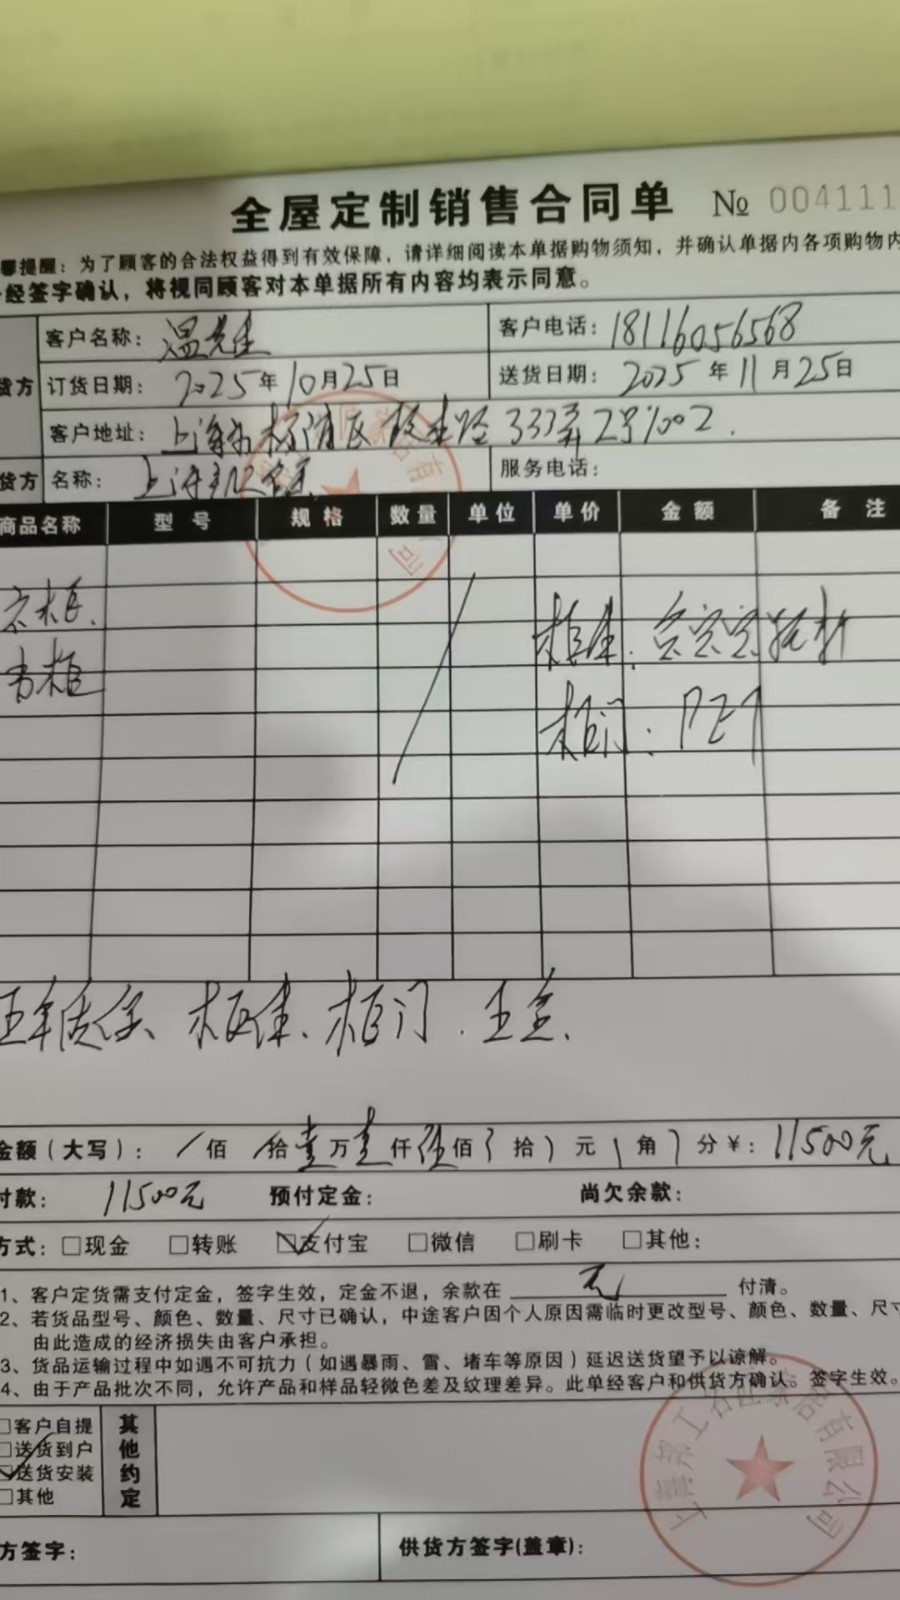 全屋定制销售合同单 № 004111
馨提醒：为了顾客的合法权益得到有效保障，请详细阅读本单据购物须知，并确认单据内各项购物内
经签字确认，将视同顾客对本单据所有内容均表示同意。
货方
客户名称：温先生 客户电话：18116056568
订货日期：2025年10月25日 送货日期：2025年11月25日
客户地址：上海市杨浦区 路333弄2号1002.
货方 名称：上海 服务电话：
商品名称 型号 规格 数量 单位 单价 金额 备注
衣柜.
书柜
柜体：
柜门：PET
五年质保、柜体、柜门、五金.
金额（大写）： /佰 /拾壹万壹仟伍佰 拾 元 角 分￥：11500元
付款：11500元 预付定金： 尚欠余款：
方式：□现金 □转账 ☑支付宝 □微信 □刷卡 □其他：
1、客户定货需支付定金，签字生效，定金不退，余款在 元 付清。
2、若货品型号、颜色、数量、尺寸已确认，中途客户因个人原因需临时更改型号、颜色、数量、尺寸
由此造成的经济损失由客户承担。
3、货品运输过程中如遇不可抗力（如遇暴雨、雪、堵车等原因）延迟送货望予以谅解。
4、由于产品批次不同，允许产品和样品轻微色差及纹理差异。此单经客户和供货方确认。签字生效。
□客户自提
□送货到户
☑送货安装
□其他
其他约定
方签字： 供货方签字(盖章)：
家居有限公司